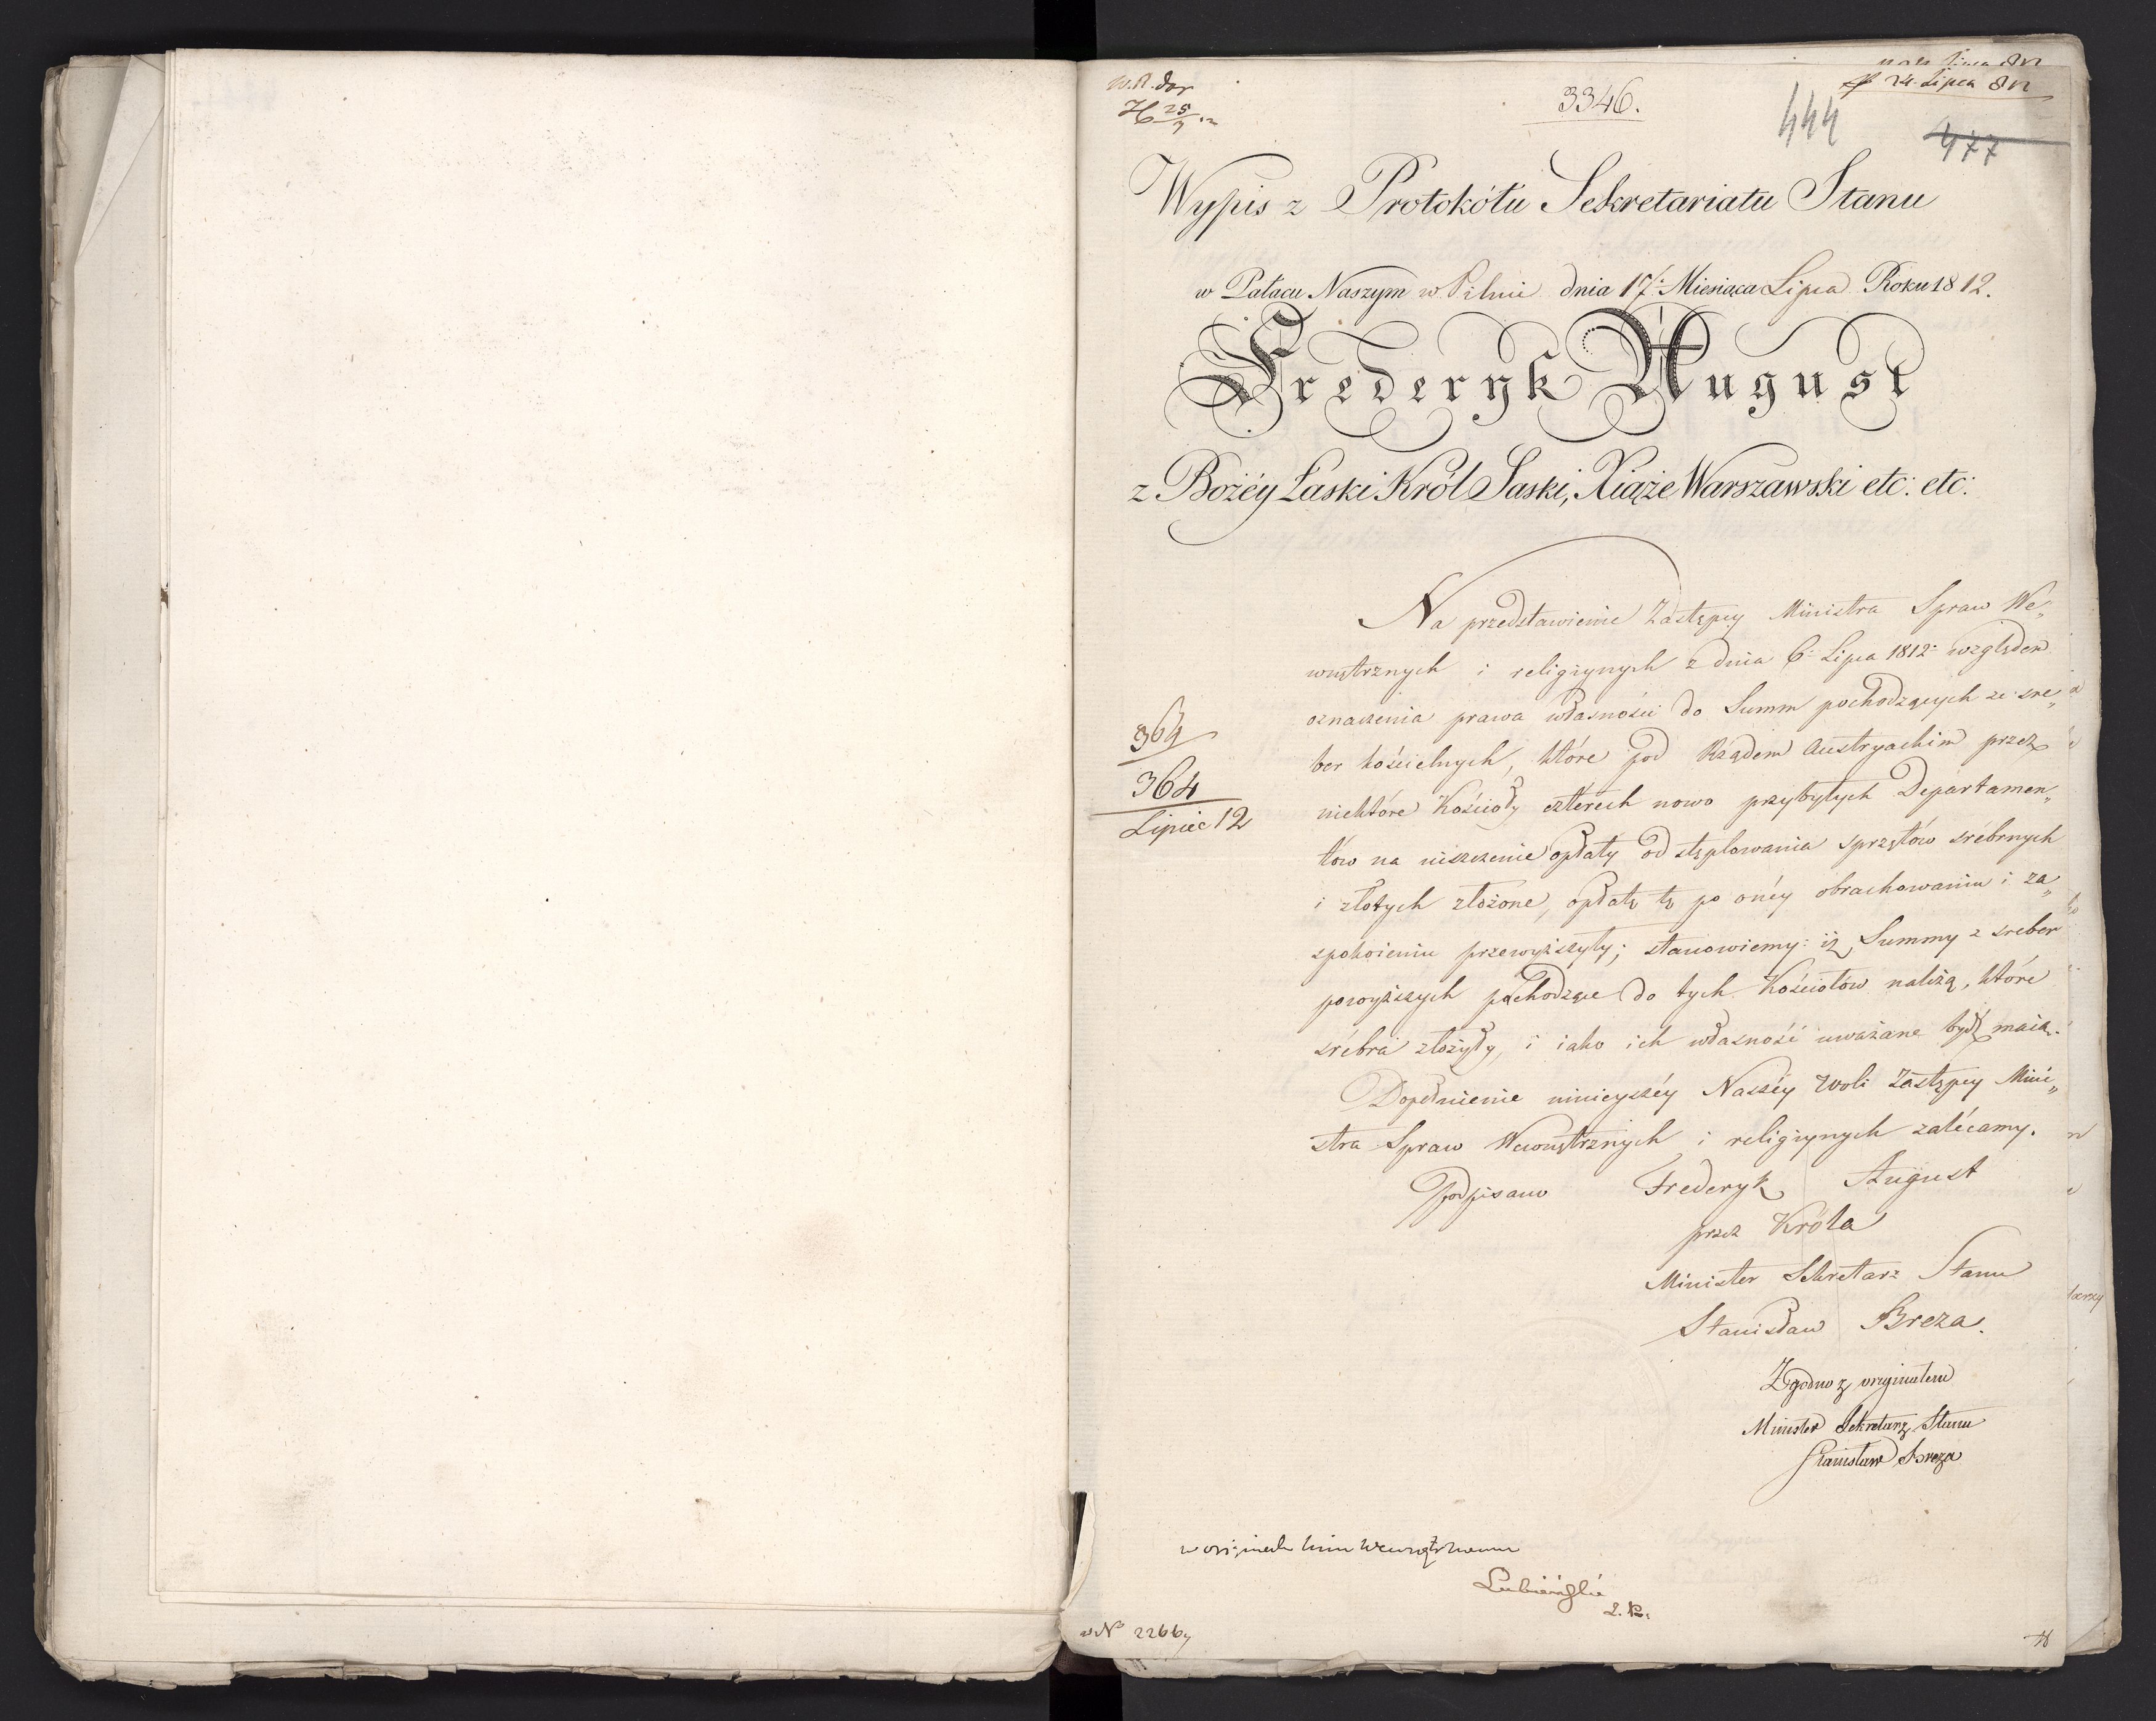 W. R. dor
3346.
24. Lipca
444
477
Wypis z Protokółu Sekretariatu Stanu
w Pałacu Naszym w Pilnie dnia 17. Miesiąca Lipca Roku 1812.
Frederyk August
z Bożéy Łaski Król Saski, Xiąże Warszawski etc: etc:
Na przedstawienie Zastępcy Ministra Spraw We„
wnętrznych i religiynych z dnia 6. Lipca 1812. względem
oznaczenia prawa własności do Summ pochodzących ze sre„
ber kościelnych, które pod Rządem Austryackim przez
niektóre Kościoły czterech nowo przybyłych Departamen„
tów na uiszczenie opłaty od stęplowania sprzętów srébrnych
i złotych złożone, opłatę tę po onéy obrachowaniu i za„
spokoieniu przewyższyły; stanowiemy: iż Summy z sreber
powyższych pochodzące do tych Kościołów należą, które
srébra złożyły, i iako ich własność uważane bydź maią.
Dopełnienie ninieyszéy Naszéy Woli Zastępcy Mini„
stra Spraw Wewnętrznych i religiynych zalécamy.
Podpisano Frederyk August
przez Króla
Minister Sekretarz Stanu
Stanisław Breza.
364
364
Lipiec 12
Zgodno z oryginałem
Minister Sekretarz Stanu
Stanisław Breza
Lubieński
w N° 22667